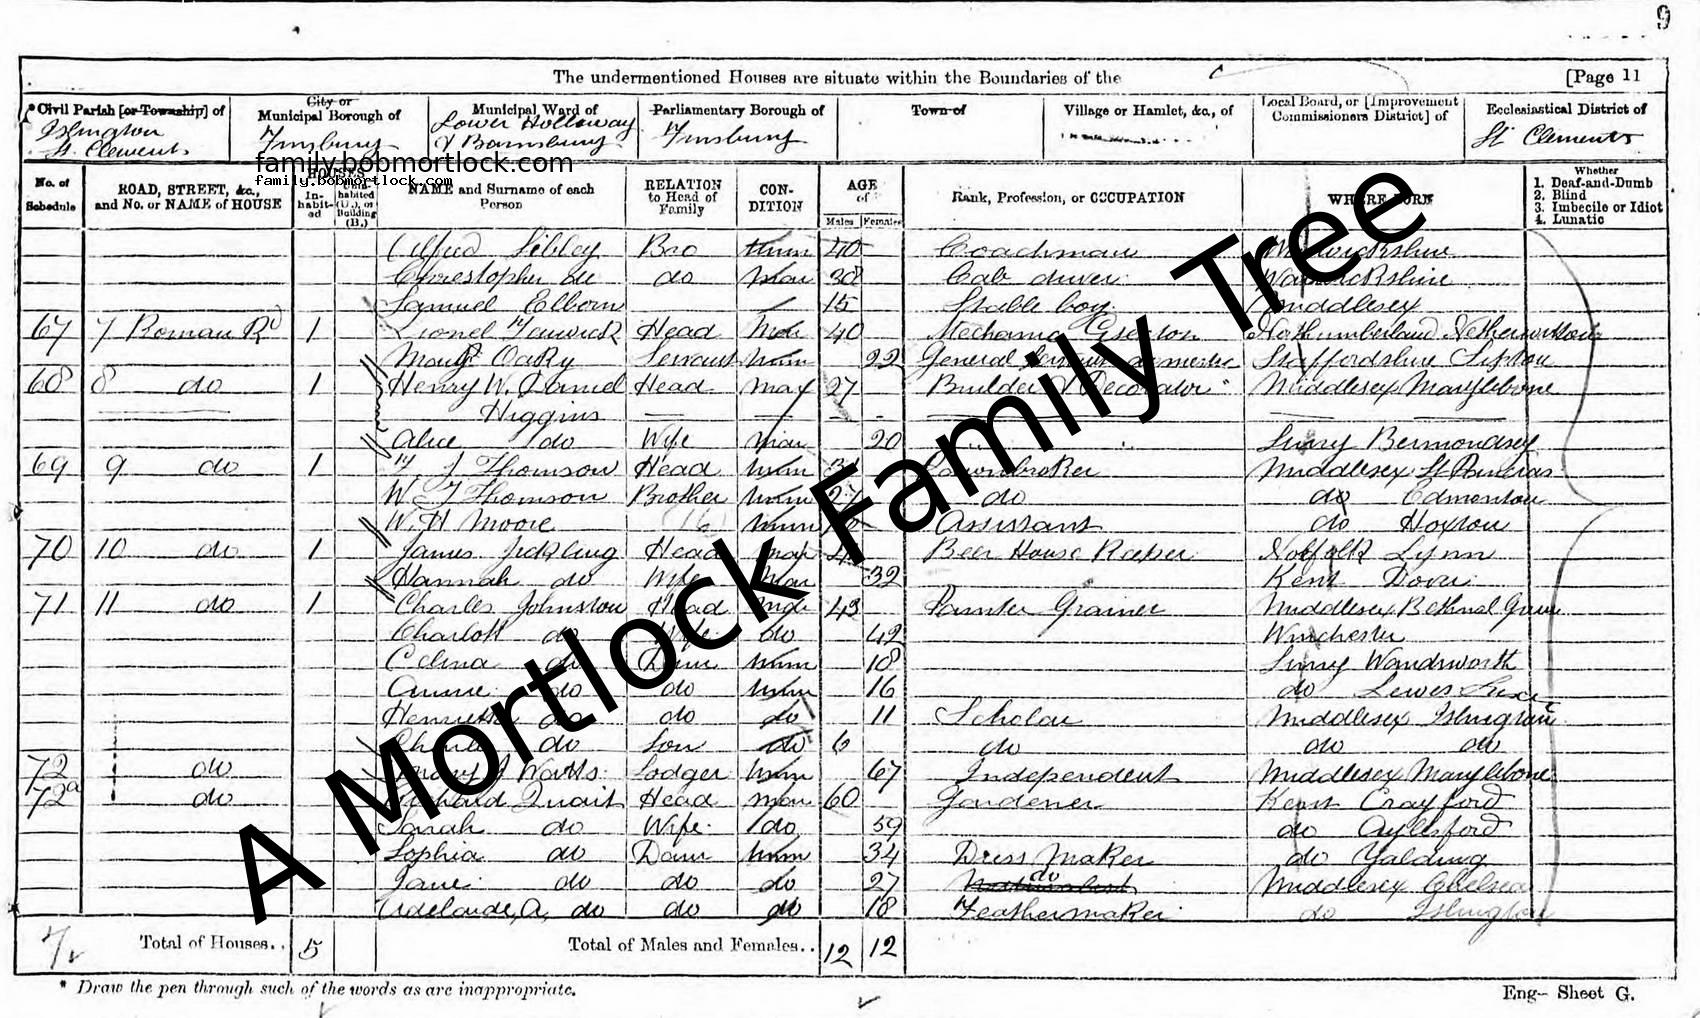 9
The undermentioned Houses are situate within the Boundaries of the [Page 11
*Civil Parish [or Township] of City or Municipal Borough of Municipal Ward of Parliamentary Borough of Town of Village or Hamlet, &c., of Local Board, or [Improvement Commissioners District] of Ecclesiastical District of
Islington St. Clements Finsbury Lower Holloway & Barnsbury Finsbury St Clements
family.bobmortlock.com
family.bobmortlock.com
No. of Schedule ROAD, STREET, &c., and No. or NAME of HOUSE HOUSES Inhabited Uninhabited (U.), or Building (B.) NAME and Surname of each Person RELATION to Head of Family CONDITION AGE of Males Females Rank, Profession, or OCCUPATION WHERE BORN Whether 1. Deaf-and-Dumb 2. Blind 3. Imbecile or Idiot 4. Lunatic
Alfred Sibley Bro Unm 40 Coachman Warwickshire
Christopher do do Mar 38 Cab driver Warwickshire
Samuel Elborn 15 Stable boy Middlesex
67 7 Roman Rd 1 Lionel Fenwick Head 40 Northumberland
Mary Oaky Servant Unm 22 General domestic Staffordshire
68 8 do 1 Henry W. Daniel Head Mar 27 Builder & Decorator Middlesex Marylebone
Higgins
Alice do Wife Mar 20 Surrey Bermondsey
69 9 do 1 F J Thomson Head Unm Pawnbroker Middlesex St Pancras
W J Thomson Brother Unm do do Edmonton
W. H Moore Unm Assistant do Hoxton
70 10 do 1 James Jickling Head Mar Beer House Keeper Norfolk Lynn
Hannah do Wife Mar 32 Kent Dover
71 11 do 1 Charles Johnston Head Mar 43 Painter Grainer Middlesex Bethnal Green
Charlott do Wife do 42 Winchester
do Daur Unm 18 Surrey Wandsworth
Annie do do Unm 16 do Lewes
do do do 11 Scholar Middlesex Islington
Charles do Son do 6 do do do
72 do Watts Lodger Unm 67 Independent Middlesex Marylebone
72a do Richard Quait Head Mar 60 Gardener Kent Crayford
Sarah do Wife do 59 do Aylesford
Sophia do Daur Unm 34 Dress Maker do Yalding
Jane do do do 27 do Middlesex Chelsea
Adelaide, A, do do do 18 Feathermaker do Islington
Total of Houses.. 5 Total of Males and Females.. 12 12
* Draw the pen through such of the words as are inappropriate.
Eng- Sheet G.
A Mortlock Family Tree